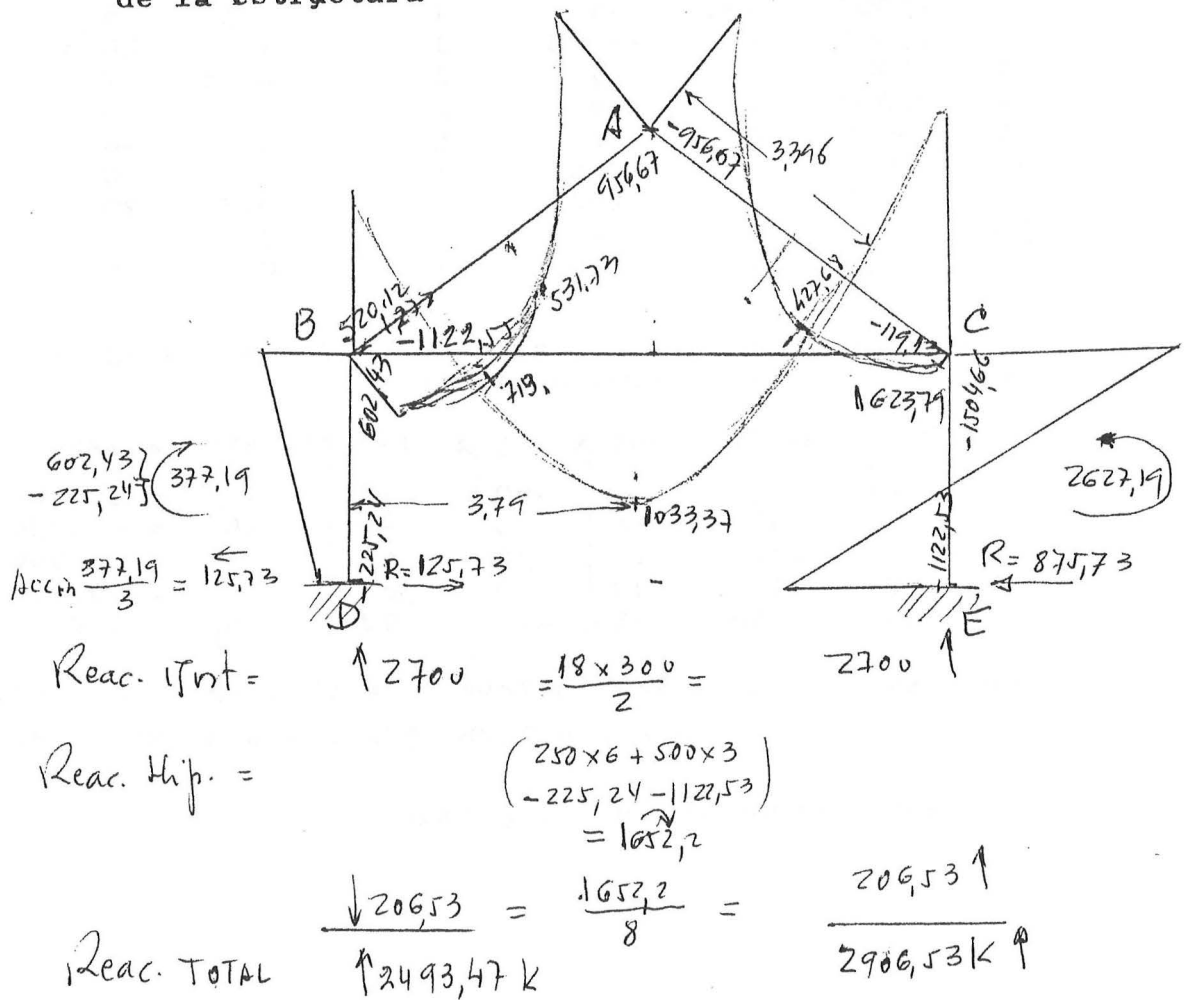 de la Estructura
A
-956,67
3,396
956,67
531,73
427,68
520,12
B
-1122,55
-119,13
C
602,43
719,
1623,79
-1504,66
602,43
-225,24
377,19
3,79
1033,37
2627,19
225,24
1122,53
Acción 377,19 / 3 = 125,73
R=125,73
R= 875,73
D
E
Reac. = ↑2700 = 18 x 300 / 2 = 2700 ↑
Reac. Hip. = (250 x 6 + 500 x 3
-225,24 -1122,53)
= 1652,2
↓206,53 = 1652,2 / 8 = 206,53↑
Reac. TOTAL ↑2493,47 K 2906,53K ↑